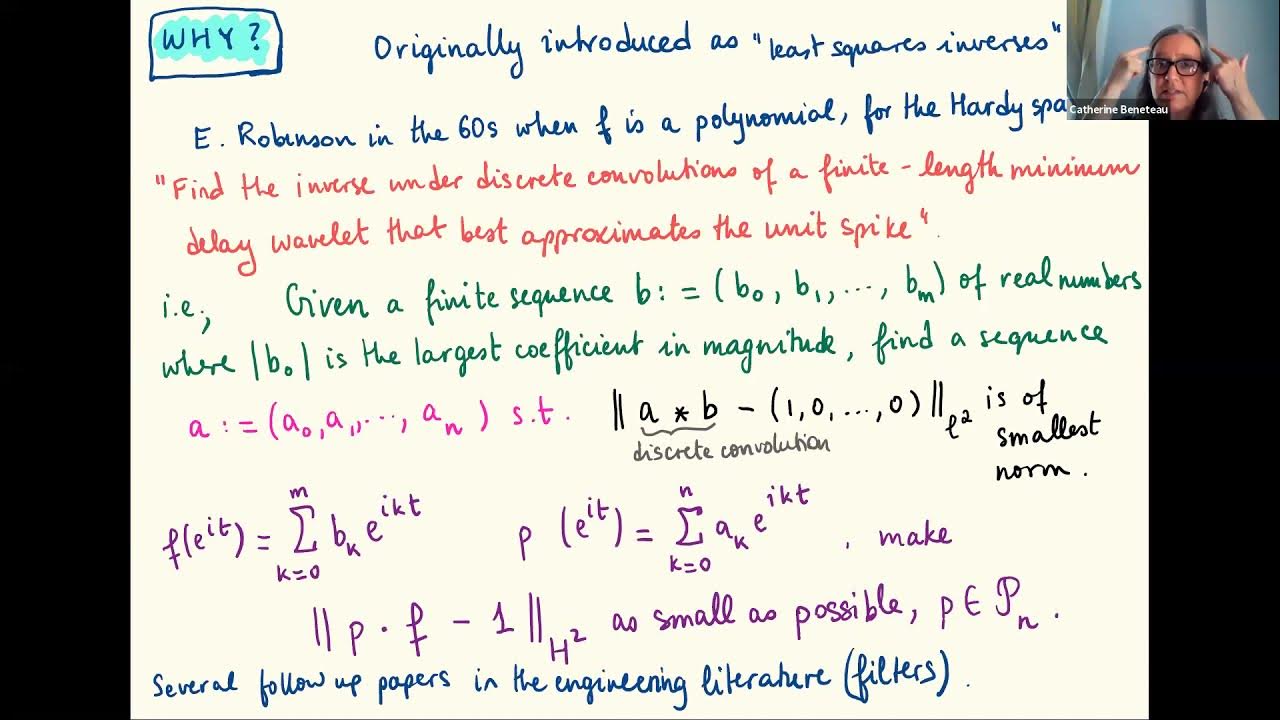 WHY? Originally introduced as "least squares inverses"
Catherine Beneteau
E. Robinson in the 60s when f is a polynomial, for the Hardy spa
"Find the inverse under discrete convolutions of a finite-length minimum
delay wavelet that best approximates the unit spike".
i.e., Given a finite sequence b := (b₀, b₁, ..., bₘ) of real numbers
where |b₀| is the largest coefficient in magnitude, find a sequence
a := (a₀, a₁, ..., aₙ) s.t. ‖ a * b - (1, 0, ..., 0) ‖_ℓ² is of
smallest
discrete convolution
norm.
f(e^{it}) = Σ_{k=0}^{m} b_k e^{ikt} p (e^{it}) = Σ_{k=0}^{n} a_k e^{ikt}, make
‖ p · f - 1 ‖_H² as small as possible, p ∈ 𝒫ₙ.
Several follow up papers in the engineering literature (filters).